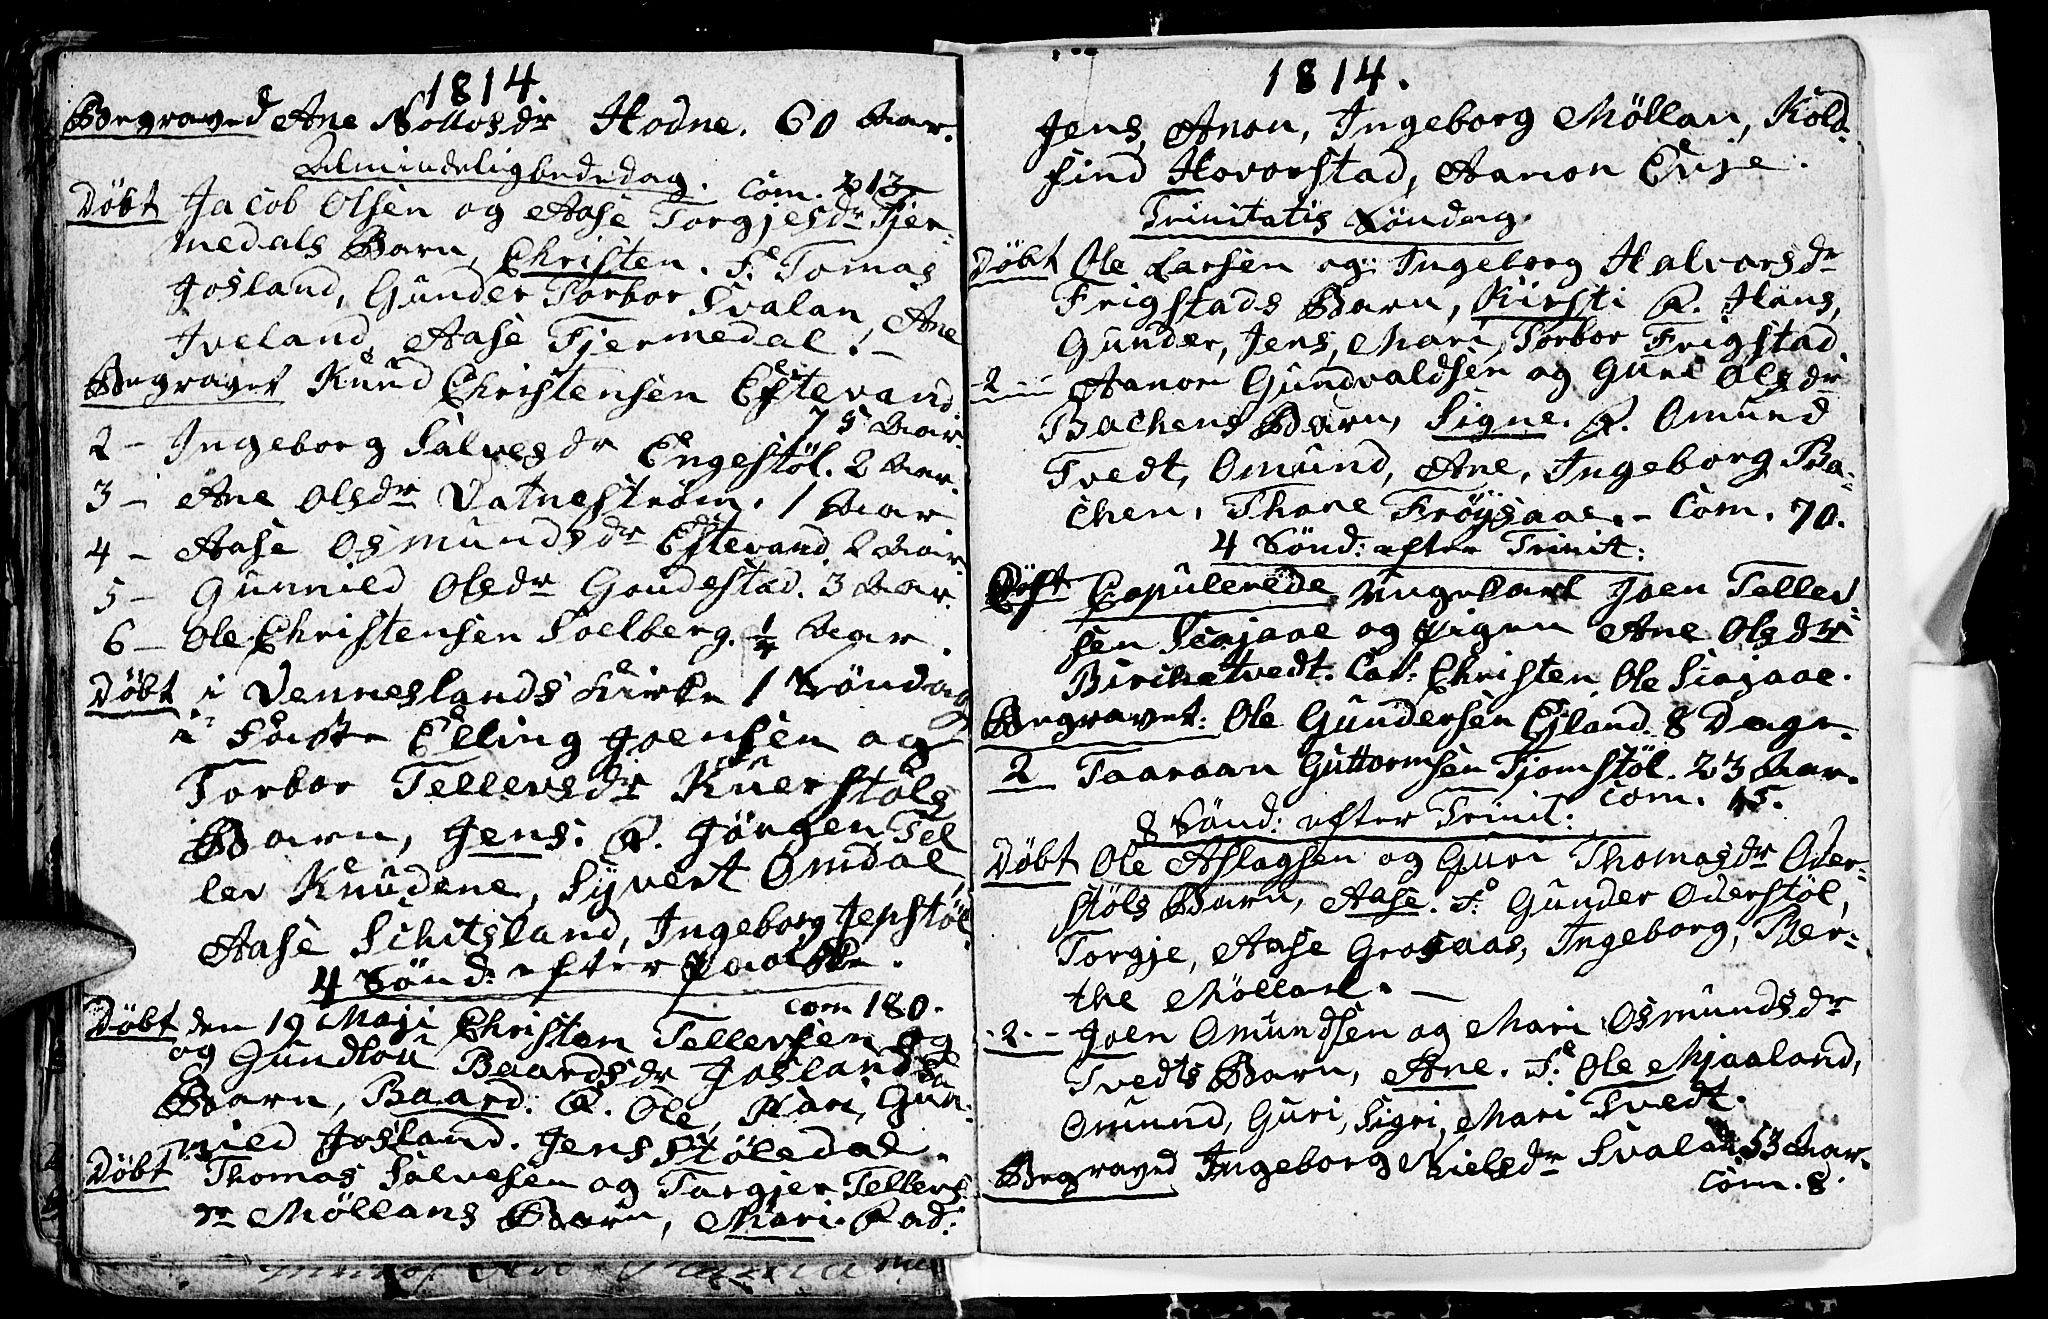 1814.
Begraved Ane Nollosdr Hodne. 60 Aar.
Almindeligbededag. Com. 213
Döbt Jacob Olsen og Aase Torgjesdr Fjer-
medals Barn, Christen. F: Tomas
Josland, Gunder Torbor Svalan, Ane
Iveland, Aase Fjermedal. –
Begravet Knud Christensen Eftevand
75 Aar.
2 – Ingeborg Salvesdr Engestöl. 2 Aar.
3 – Ane Olsdr Vatneström. 1 Aar.
4 – Aase Osmundsdr Eftevand 2 Aar.
5 – Gunnild Olsdr Goudestad. 3 Aar.
6 – Ole Christensen Soelberg. 1/4 Aar.
Döbt i Venneslands Kirke 1 Söndag
i Faste Elling Joensen og
Torbor Tellevsdr Kuerstöls
Barn, Jens. F. Jörgen Tel
lev Knudene, Syvert Omdal,
Aase Schitsland, Ingeborg Jepstöl.
4 Sönd: efter Paaske.
com 180.
Döbt den 19 Maji Christen Tellevsen og
og Gundlou Baardsdr Joslands
Barn, Baard. F. Ole, Kari, Gun-
nild Josland. Jens Stöledal.
Döbt Thomas Salvesen og Torgjer Tellevs
dr Möllans Barn, Mari. Fad:
1814.
Jens, Anon, Ingeborg Möllan, Kold-
find Hovorstad, Aanon Evje.
Trinitatis Söndag.
Döbt Ole Larsen og Ingeborg Halvorsdr
Frigstads Barn, Kirsti F. Hans,
Gunder, Jens, Mari, Torbor Frigstad.
2 – Aanon Gundvaldsen og Guri Olsdr
Bachens Barn, Signe. F. Omund
Tvedt, Omund, Ane, Ingeborg Ba-
chen, Thore Fröysaae. – Com. 70.
4 Sönd: efter Trinit:
Copulerede Ungekarl Joen Tellev-
sen Sirjaae og Pigen Ane Olsdr
Birchetvedt. Cav: Christen, Ole Sirjaae.
Begravet: Ole Gundersen Ejland. 8 Dage.
2 Taaraan Guttormsen Tjomstöl. 23 Aar.
Com. 15.
8 Sönd: efter Trinit:
Döbt Ole Aslagsen og Guri Thomasdr Oder-
stöls Barn, Aase. F: Gunder Oderstöl,
Torgje, Aase Grosaas, Ingeborg, Ber-
the Möllan. –
2 – Joen Omundsen og Mari Osmundsdr
Tvedts Barn, Ane. F: Ole Mjaaland,
Omund, Guri, Sigri, Mari Tvedt.
Begraved Ingeborg Nielsdr Svalan 53 Aar.
Com. 8.